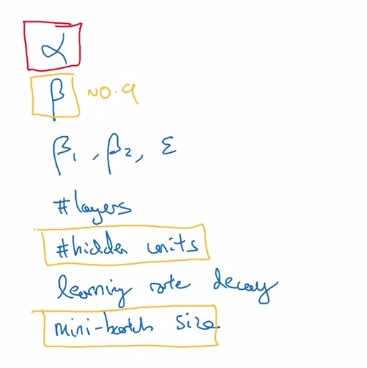 α
β ~0.9
β₁, β₂, ε
#layers
#hidden units
learning rate decay
mini-batch size